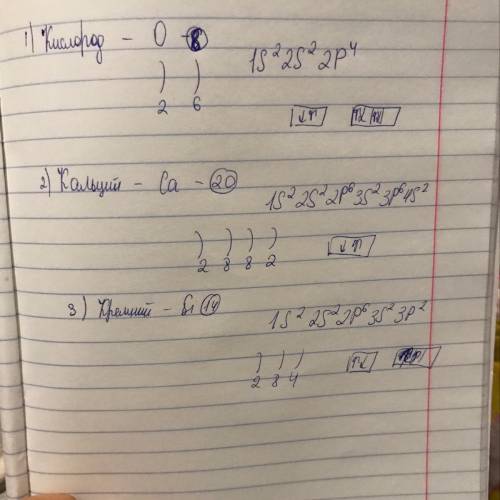 1) Кислород - O 8
1S² 2S² 2P⁴
2 6
↓↑ ↑↓ ↑↓
2) Кальций - Ca - 20
1S² 2S² 2P⁶ 3S² 3P⁶ 4S²
2 8 8 2
↓↑
3) Кремний - Si 14
1S² 2S² 2P⁶ 3S² 3P²
2 8 4
↑↓